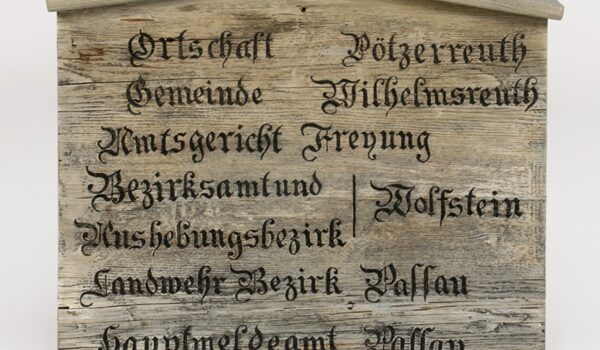 Ortschaft Pötzerreuth
Gemeinde Wilhelmsreuth
Amtsgericht Freyung
Bezirksamt und
Aushebungsbezirk | Wolfstein
Landwehr Bezirk Paſſau
Hauptmeldeamt Paſſau